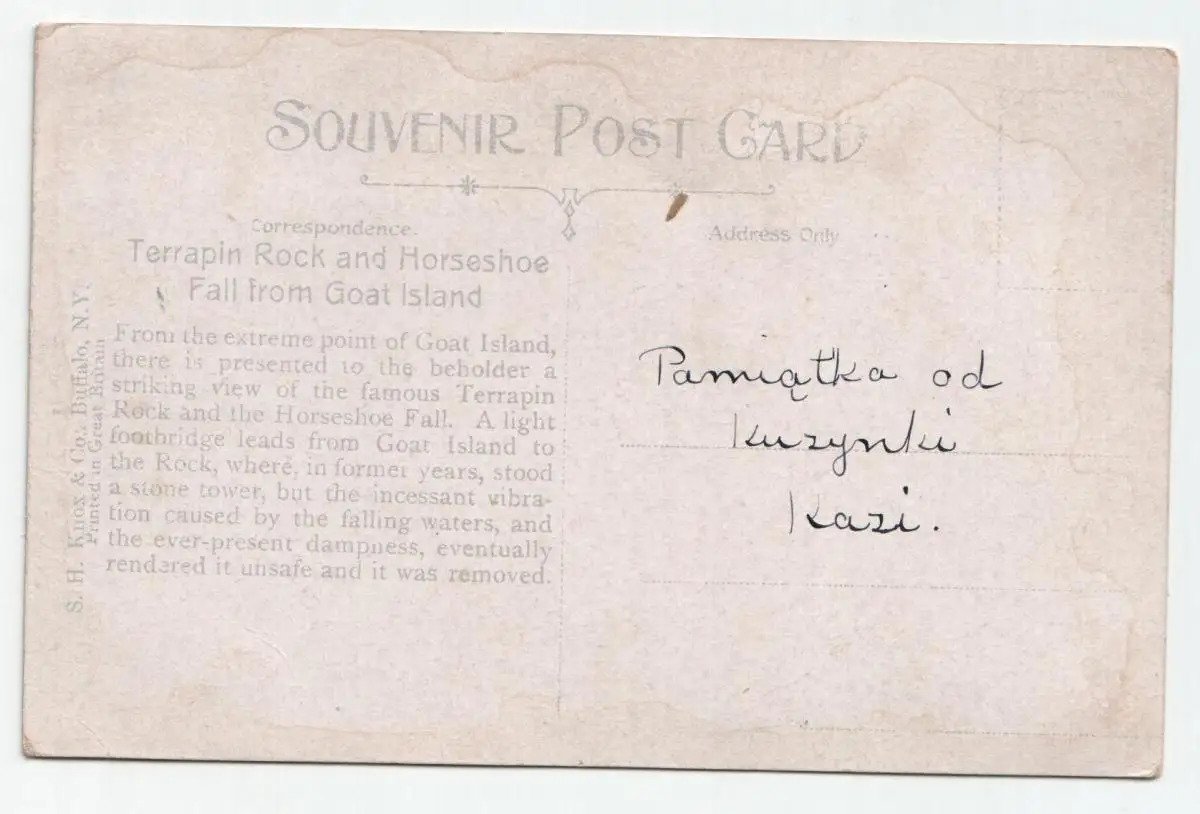 SOUVENIR POST CARD
Correspondence.
Terrapin Rock and Horseshoe
Fall from Goat Island
From the extreme point of Goat Island,
there is presented to the beholder a
striking view of the famous Terrapin
Rock and the Horseshoe Fall. A light
footbridge leads from Goat Island to
the Rock, where, in former years, stood
a stone tower, but the incessant vibra-
tion caused by the falling waters, and
the ever-present dampness, eventually
rendered it unsafe and it was removed.
S. H. Knox & Co., Buffalo, N.Y.
Printed in Great Britain
Address Only
Pamiątka od
Kuzynki
Kazi.